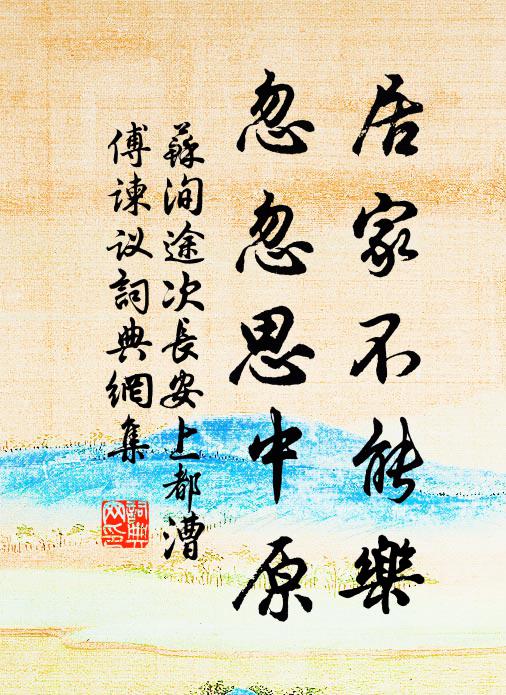 居家不能樂
忽忽思中原
蘇洵途次長安上都漕
傅諫议詞典網集
詞典
网印